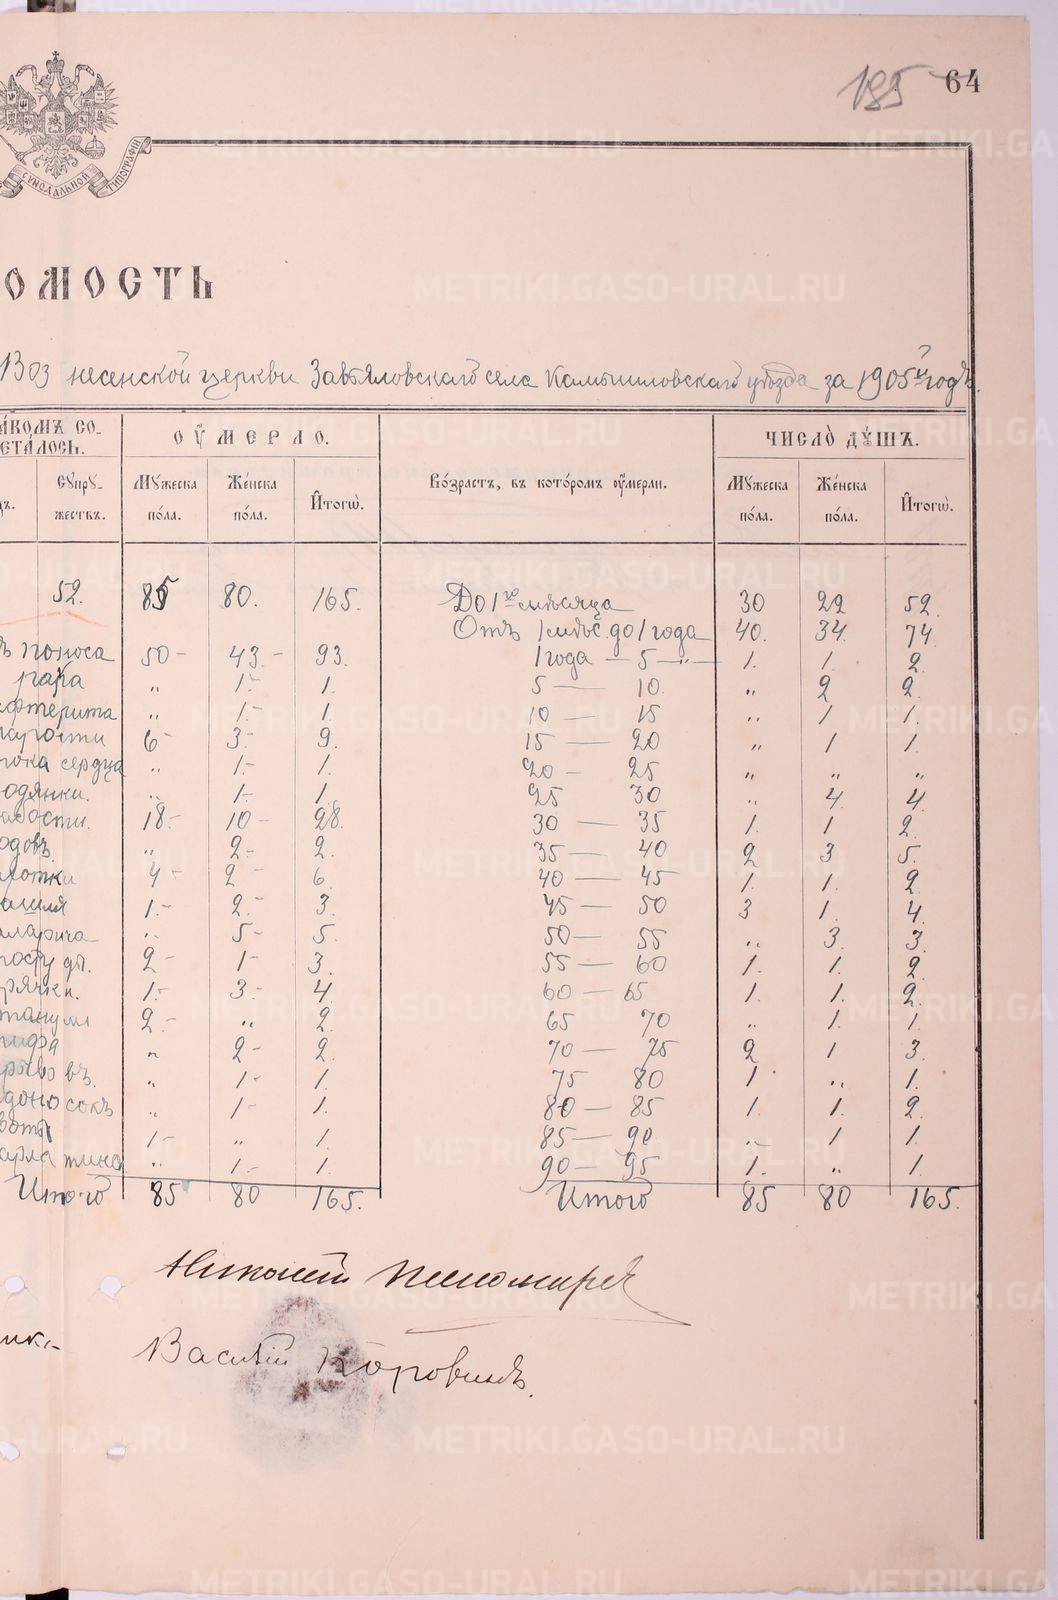 185 64
СѴНОДАЛЬНОЙ ТИПОГРАФІИ
ОМОСТЬ
Вознесенской церкви Завьяловскаго села Камышловскаго уѣзда за 1905й годъ.
АКОМЪ СО-
ЕТАЛОСЬ. ОУМЕРЛО. ЧИСЛО ДУШЪ.
Супру-
жествъ. Мужеска
пола. Женска
пола. Итогѡ. Возрастъ, въ которомъ оумерли. Мужеска
пола. Женска
пола. Итогѡ.
52. 85 80. 165. До 1го мѣсяца 30 22 52.
Отъ 1 мѣс. до 1 года 40. 34. 74
поноса 50- 43.- 93. 1 года — 5 —„— 1. 1. 2.
„ 1.- 1. 5 — 10. „ 2 2.
фтерита „ 1.- 1. 10 — 15 „ 1 1.
6- 3- 9. 15 — 20 „ 1 1.
ока сердца „ 1.- 1. 20 - 25 „ „ „
одянки. „ 1- 1. 25 30 „ 4 4
18.- 10- 28. 30 — 35 1. 1 2.
одовъ. „ 2- 2. 35 — 40 2 3 5.
лотки 4- 2- 6. 40 — 45 1. 1. 2
ашля 1.- 2.- 3. 45 — 50 3 1. 4.
„ 5- 5. 50 — 55 „ 3. 3.
2- 1- 3. 55 — 60 1. 1. 2
рячки. 1.- 3- 4. 60 — 65 1. 1. 2.
2.- „ 2. 65 70 „ 1. 1.
ифа „ 2- 2. 70 — 75 2 1 3.
„ 1- 1. 75 80 1 „ 1.
„ 1- 1. 80 — 85 1. 1. 2.
1- „ 1. 85 — 90 „ 1 1.
арлатина „ 1.- 1. 90 — 95 1. „ 1.
Итого 85 80 165. Итого 85 80 165.
Николай Пономаревъ
Василій Коровинъ.
METRIKI.GASO-URAL.RU